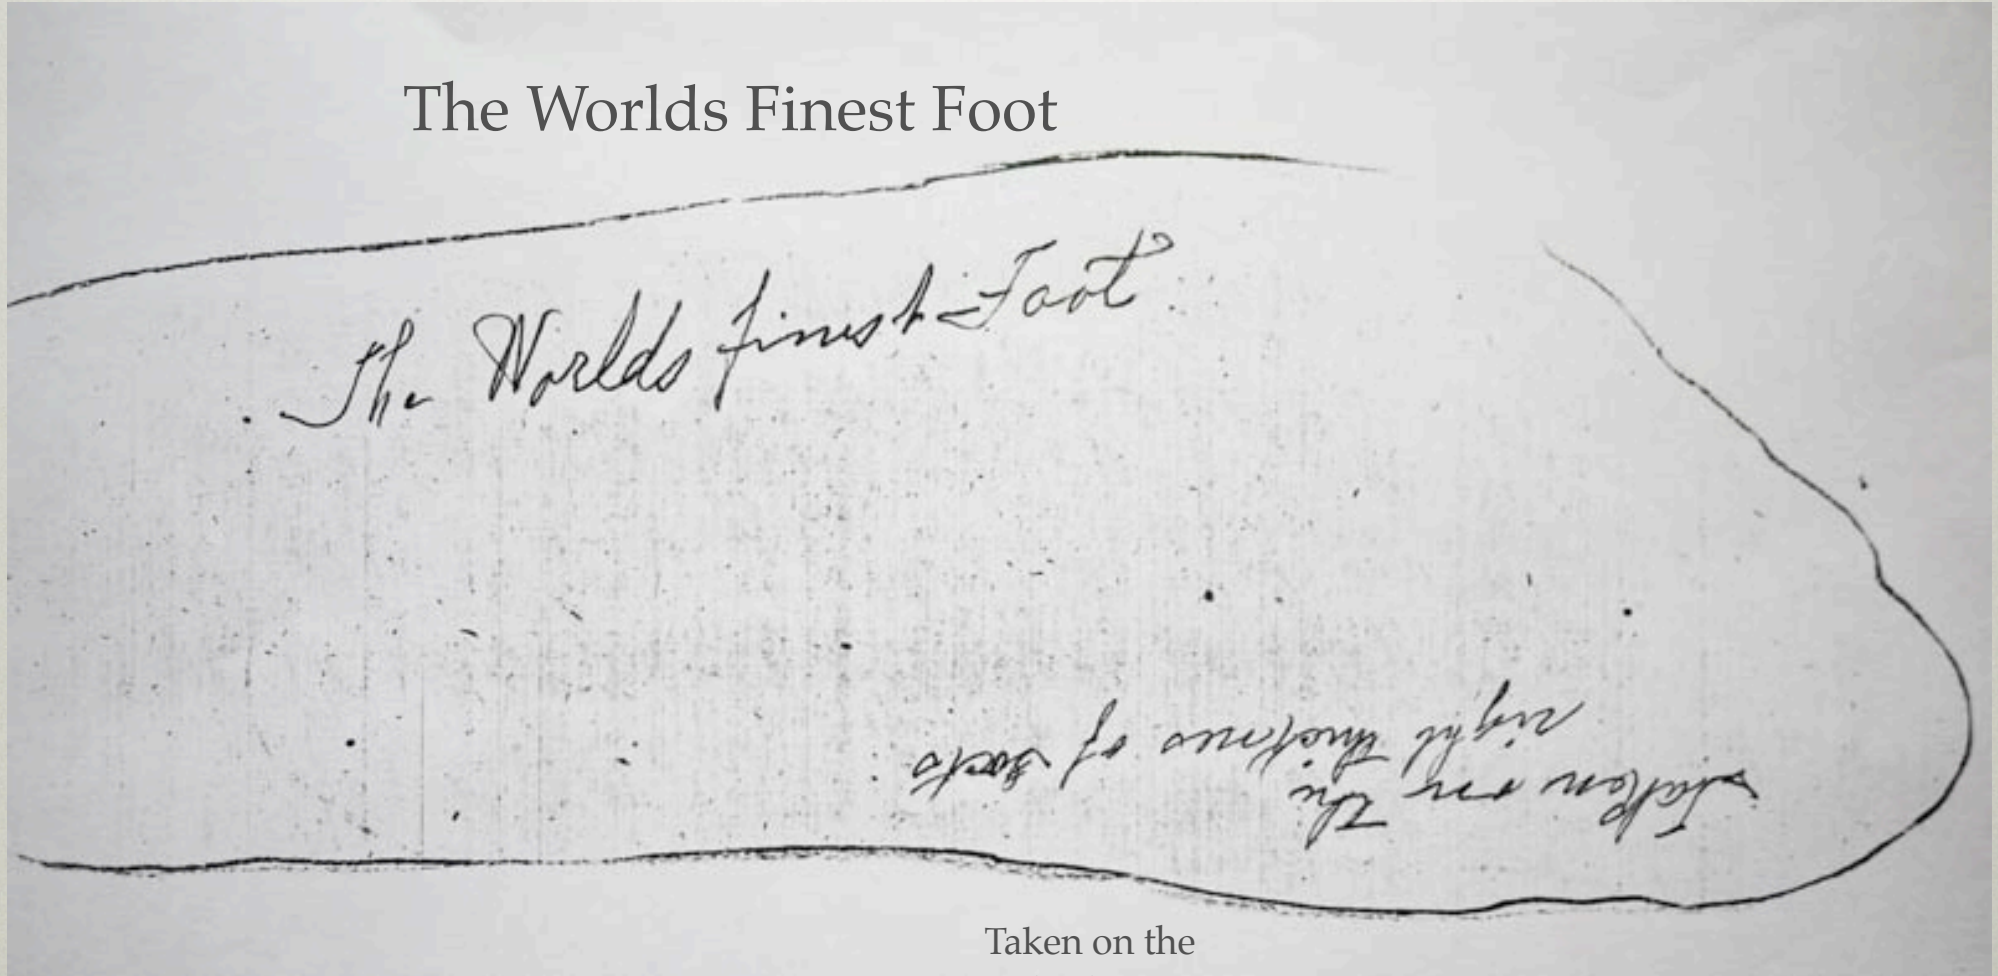 The Worlds Finest Foot
The Worlds finest Foot
Taken on the
right thicknes of socks
Taken on the